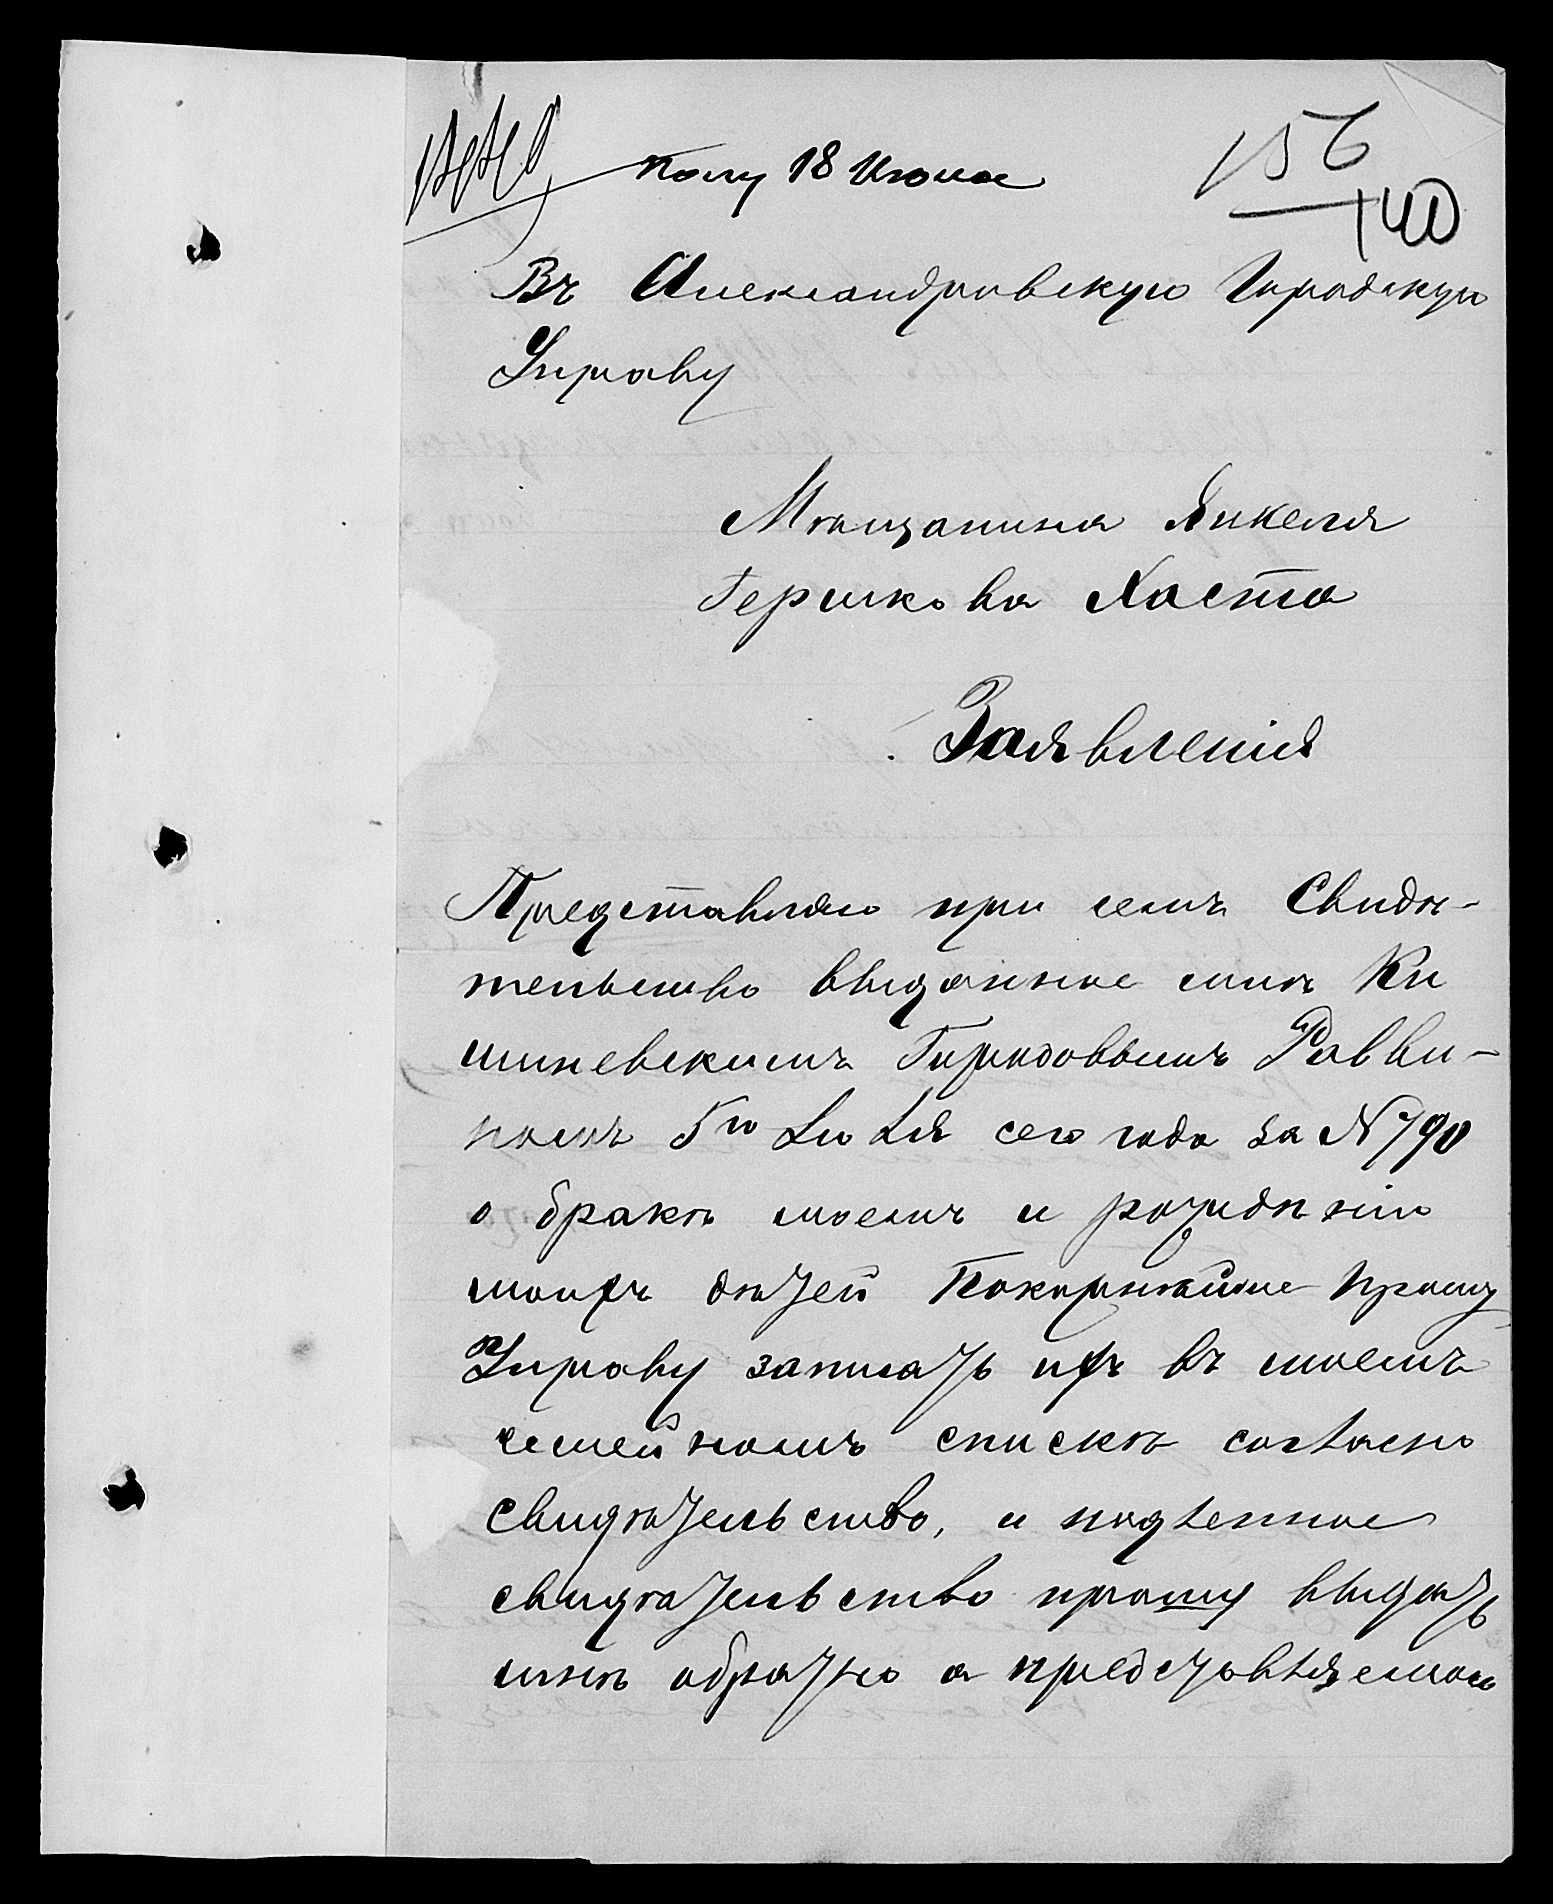 Полу 18 Июня
156
140
Въ Александровскую Городскую
Управу
Мѣщанина Янкеля
Гершкова Хаста
Заявленія
Представляю при семъ Свидѣ-
тельство выданное мнѣ Ки
шиневскимъ Городовымъ Равви-
номъ 5го сего года за N 790
о бракѣ моемъ и рождѣнію
моихъ дѣтей Покорнѣйше прошу
Управу записать ихъ въ моемъ
семейномъ спискѣ согласно
свидѣтельство, и подленное
свидѣтельство прошу выдать
мнѣ обратно а